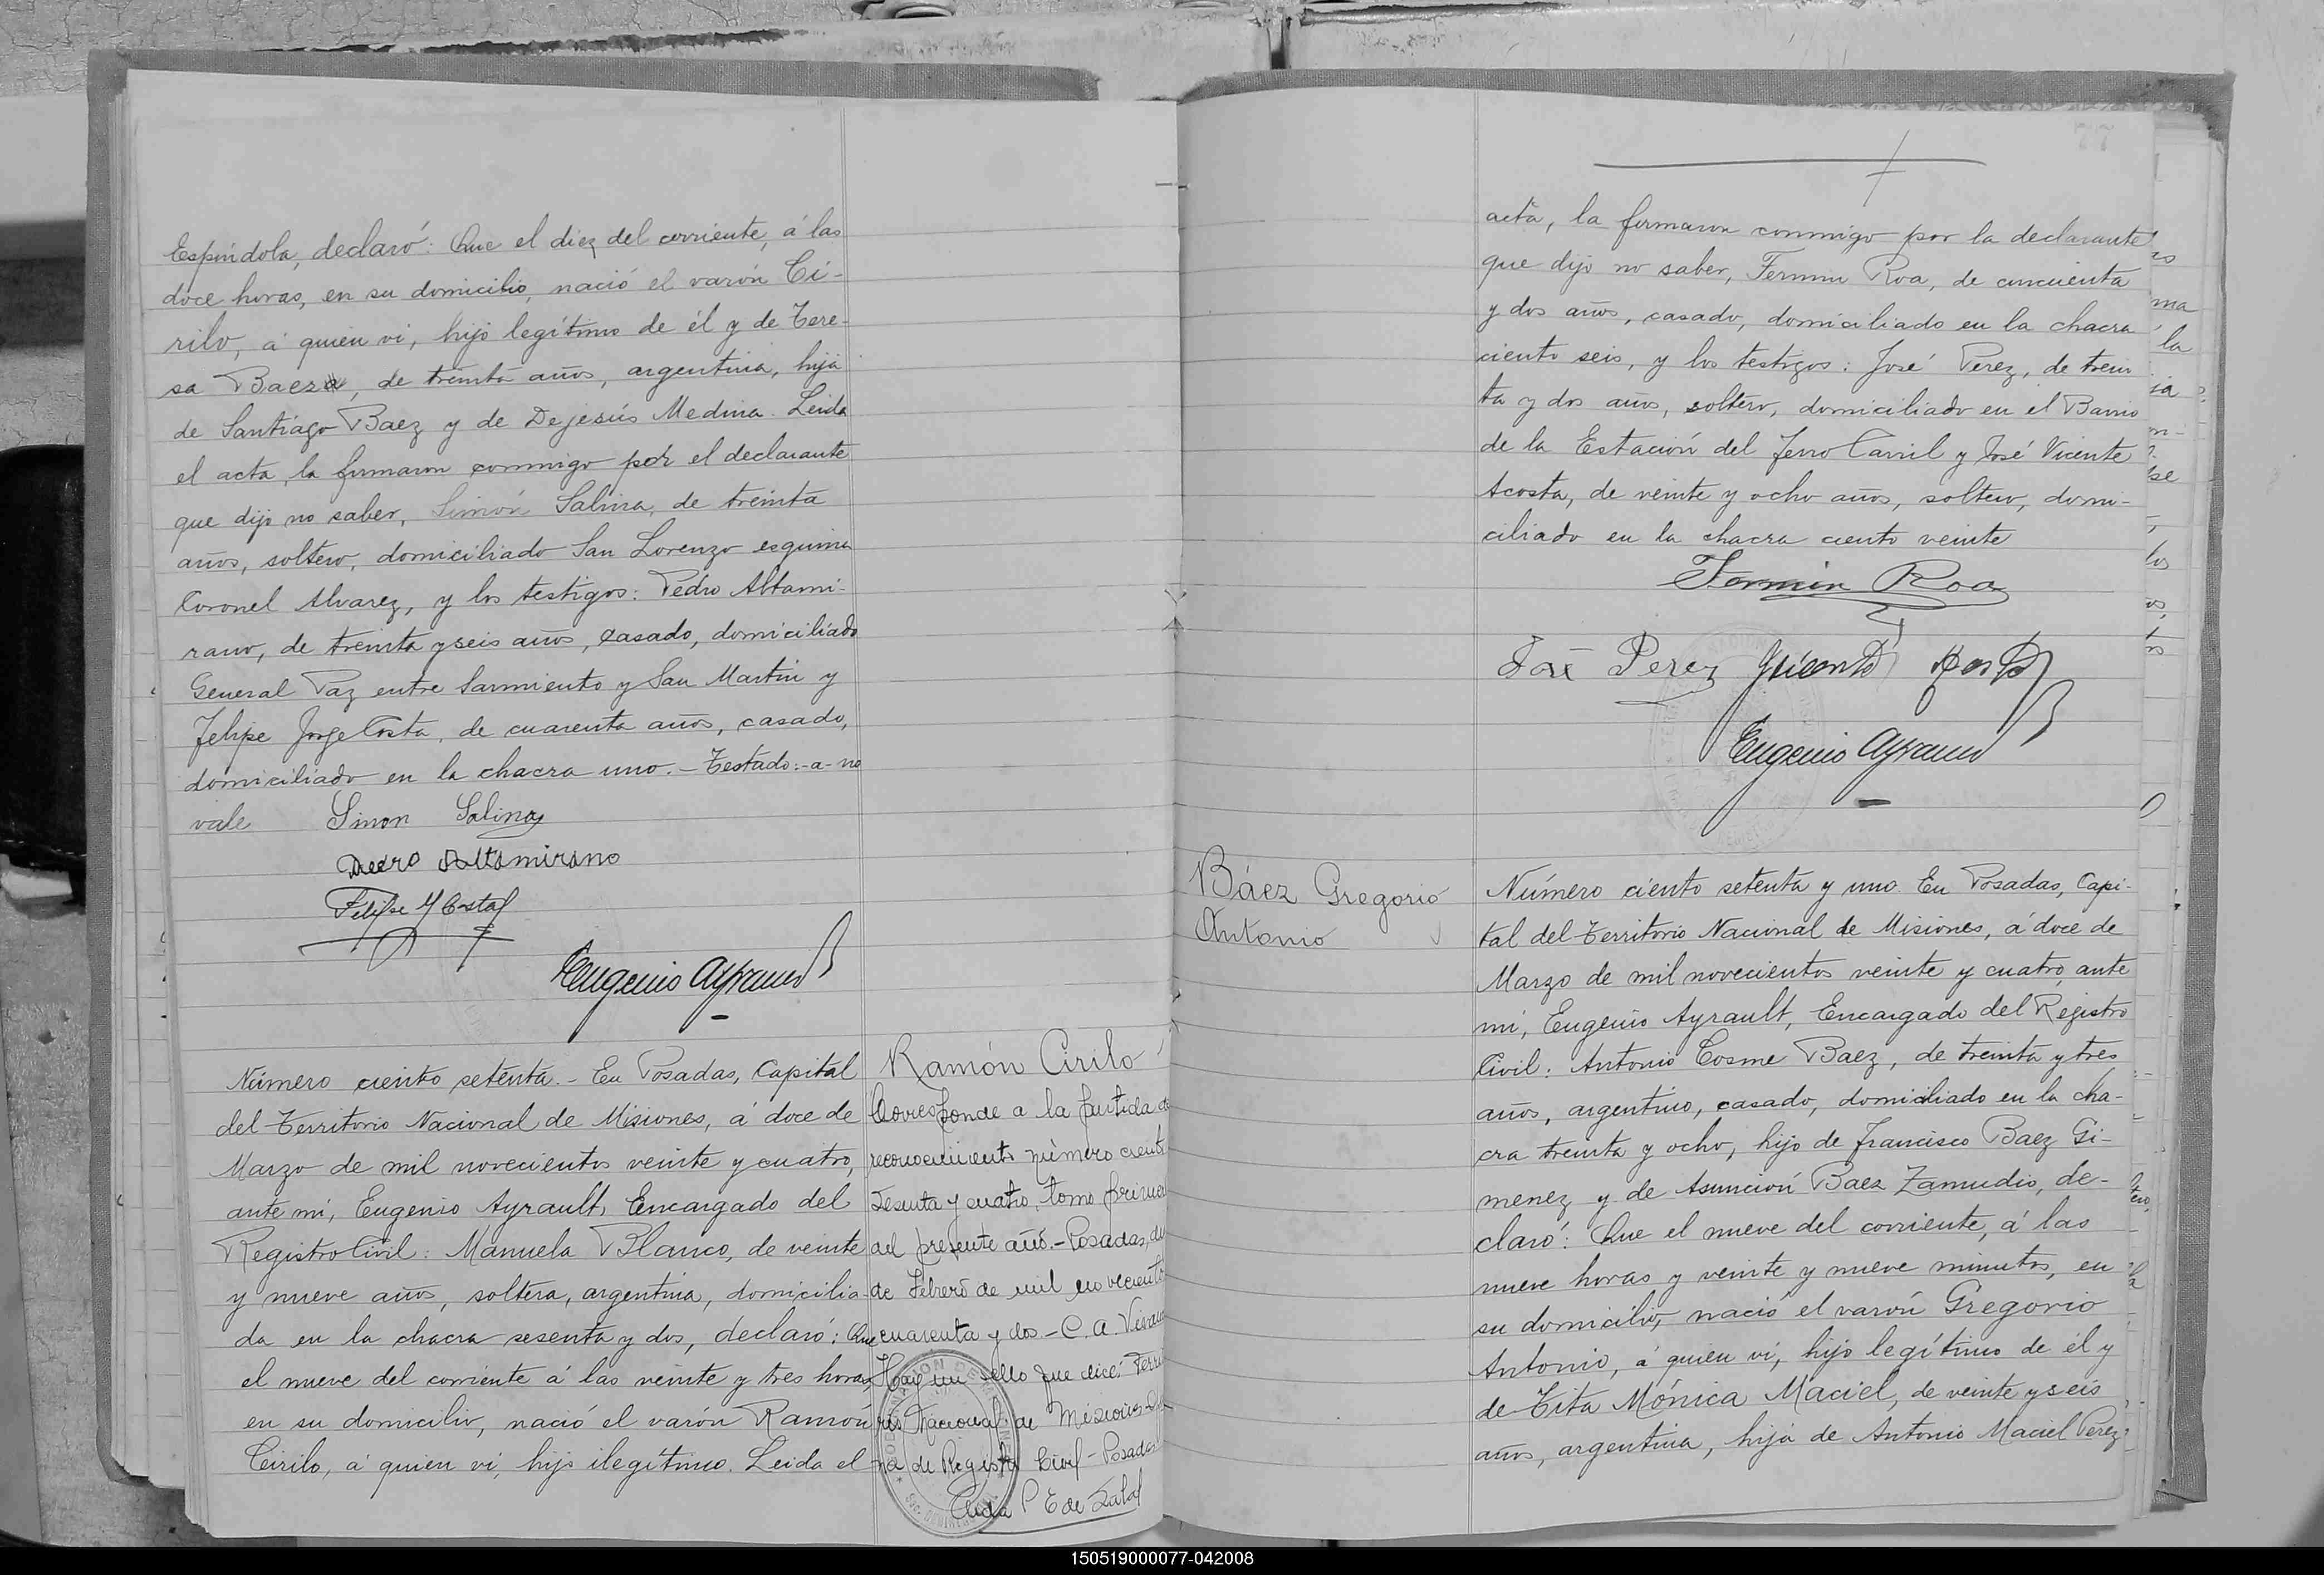 Espíndola, declaró: Que el diez del corriente, á las
doce horas, en su domicilio, nació el varón Ci-
rilo, á quien vi, hijo legítimo de él y de Tere-
sa Baeza, de treinta años, argentina, hija
de Santiago Baez y de Dejesús Medina. Leida
el acta, la firmaron conmigo por el declarante
que dijo no saber, Simón Salina, de treinta
años, soltero, domiciliado San Lorenzo esquina
Coronel Alvarez, y los testigos: Pedro Altami-
rano, de treinta y seis años, casado, domiciliado
General Paz entre Sarmiento y San Martin y
Felipe Jorge Costa, de cuarenta años, casado,
domiciliado en la chacra uno.- Testado:-a-no
vale
Simon Salina
Pedro Altamirano
Felipe J Costa
Eugenio Ayrault
Número ciento setenta.- En Posadas, Capital
del Territorio Nacional de Misiones, á doce de
Marzo de mil novecientos veinte y cuatro,
ante mí, Eugenio Ayrault, Encargado del
Registro Civil: Manuela Blanco, de veinte
y nueve años, soltera, argentina, domicilia-
da en la chacra sesenta y dos, declaró: Que
el nueve del corriente á las veinte y tres horas,
en su domicilio, nació el varón Ramón
Cirilo, á quien vi, hijo ilegítimo. Leida el
Ramón Cirilo
Corresponde a la partida de
reconocimiento número ciento
sesenta y cuatro, tomo primero
del presente año.- Posadas,
de Febrero de mil novecientos
cuarenta y dos.- C. A.
Hay un sello que dice: Terri
rio Nacional de Misiones
na de Registro Civil - Posadas
Aida P E de
77
acta, la firmaron conmigo por la declarante
que dijo no saber, Fermin Roa, de cincuenta
y dos años, casado, domiciliado en la chacra
ciento seis, y los testigos: José Perez, de trein
ta y dos años, soltero, domiciliado en el Barrio
de la Estación del Ferro Carril y José Vicente
Acosta, de veinte y ocho años, soltero, domi-
ciliado en la chacra ciento veinte
Fermin Roa
José Perez Vicente Acosta
Eugenio Ayrault
Báez Gregorio
Antonio
Número ciento setenta y uno. En Posadas, Capi-
tal del Territorio Nacional de Misiones, á doce de
Marzo de mil novecientos veinte y cuatro, ante
mí, Eugenio Ayrault, Encargado del Registro
Civil: Antonio Cosme Baez, de treinta y tres
años, argentino, casado, domiciliado en la cha-
cra treinta y ocho, hijo de Francisco Baez Gi-
menez y de Asunción Baez Zamudio, de-
claró: Que el nueve del corriente, á las
nueve horas y veinte y nueve minutos, en
su domicilio, nació el varón Gregorio
Antonio, á quien vi, hijo legítimo de él y
de Tita Mónica Maciel, de veinte y seis
años, argentina, hija de Antonio Maciel Perez
150519000077-042008